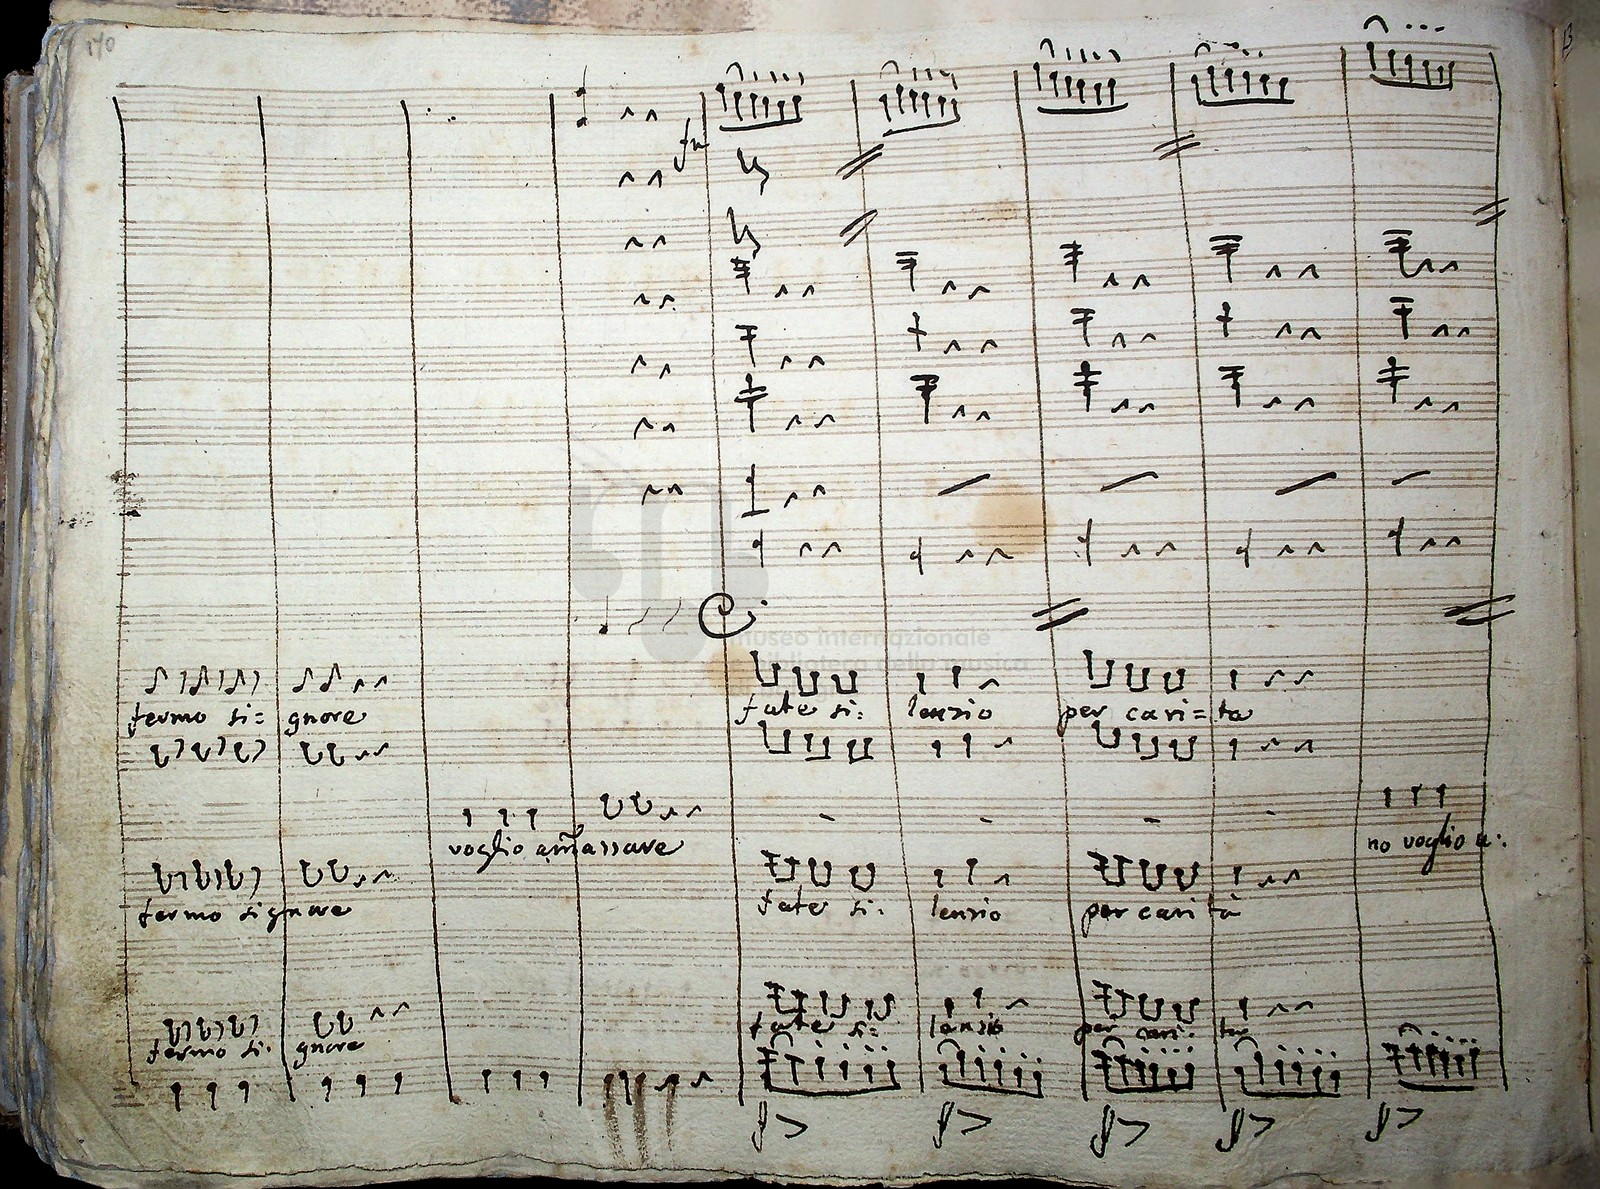 170
museo internazionale
e biblioteca della musica
fermo si= gnore
fate si: lenzio per cari=ta
voglio am̃assare
no voglio a:
fermo signore
fate si: lenzio per carità
fermo si: gnore
fate si: lenzio per cari: ta
f> f> f> f> f>